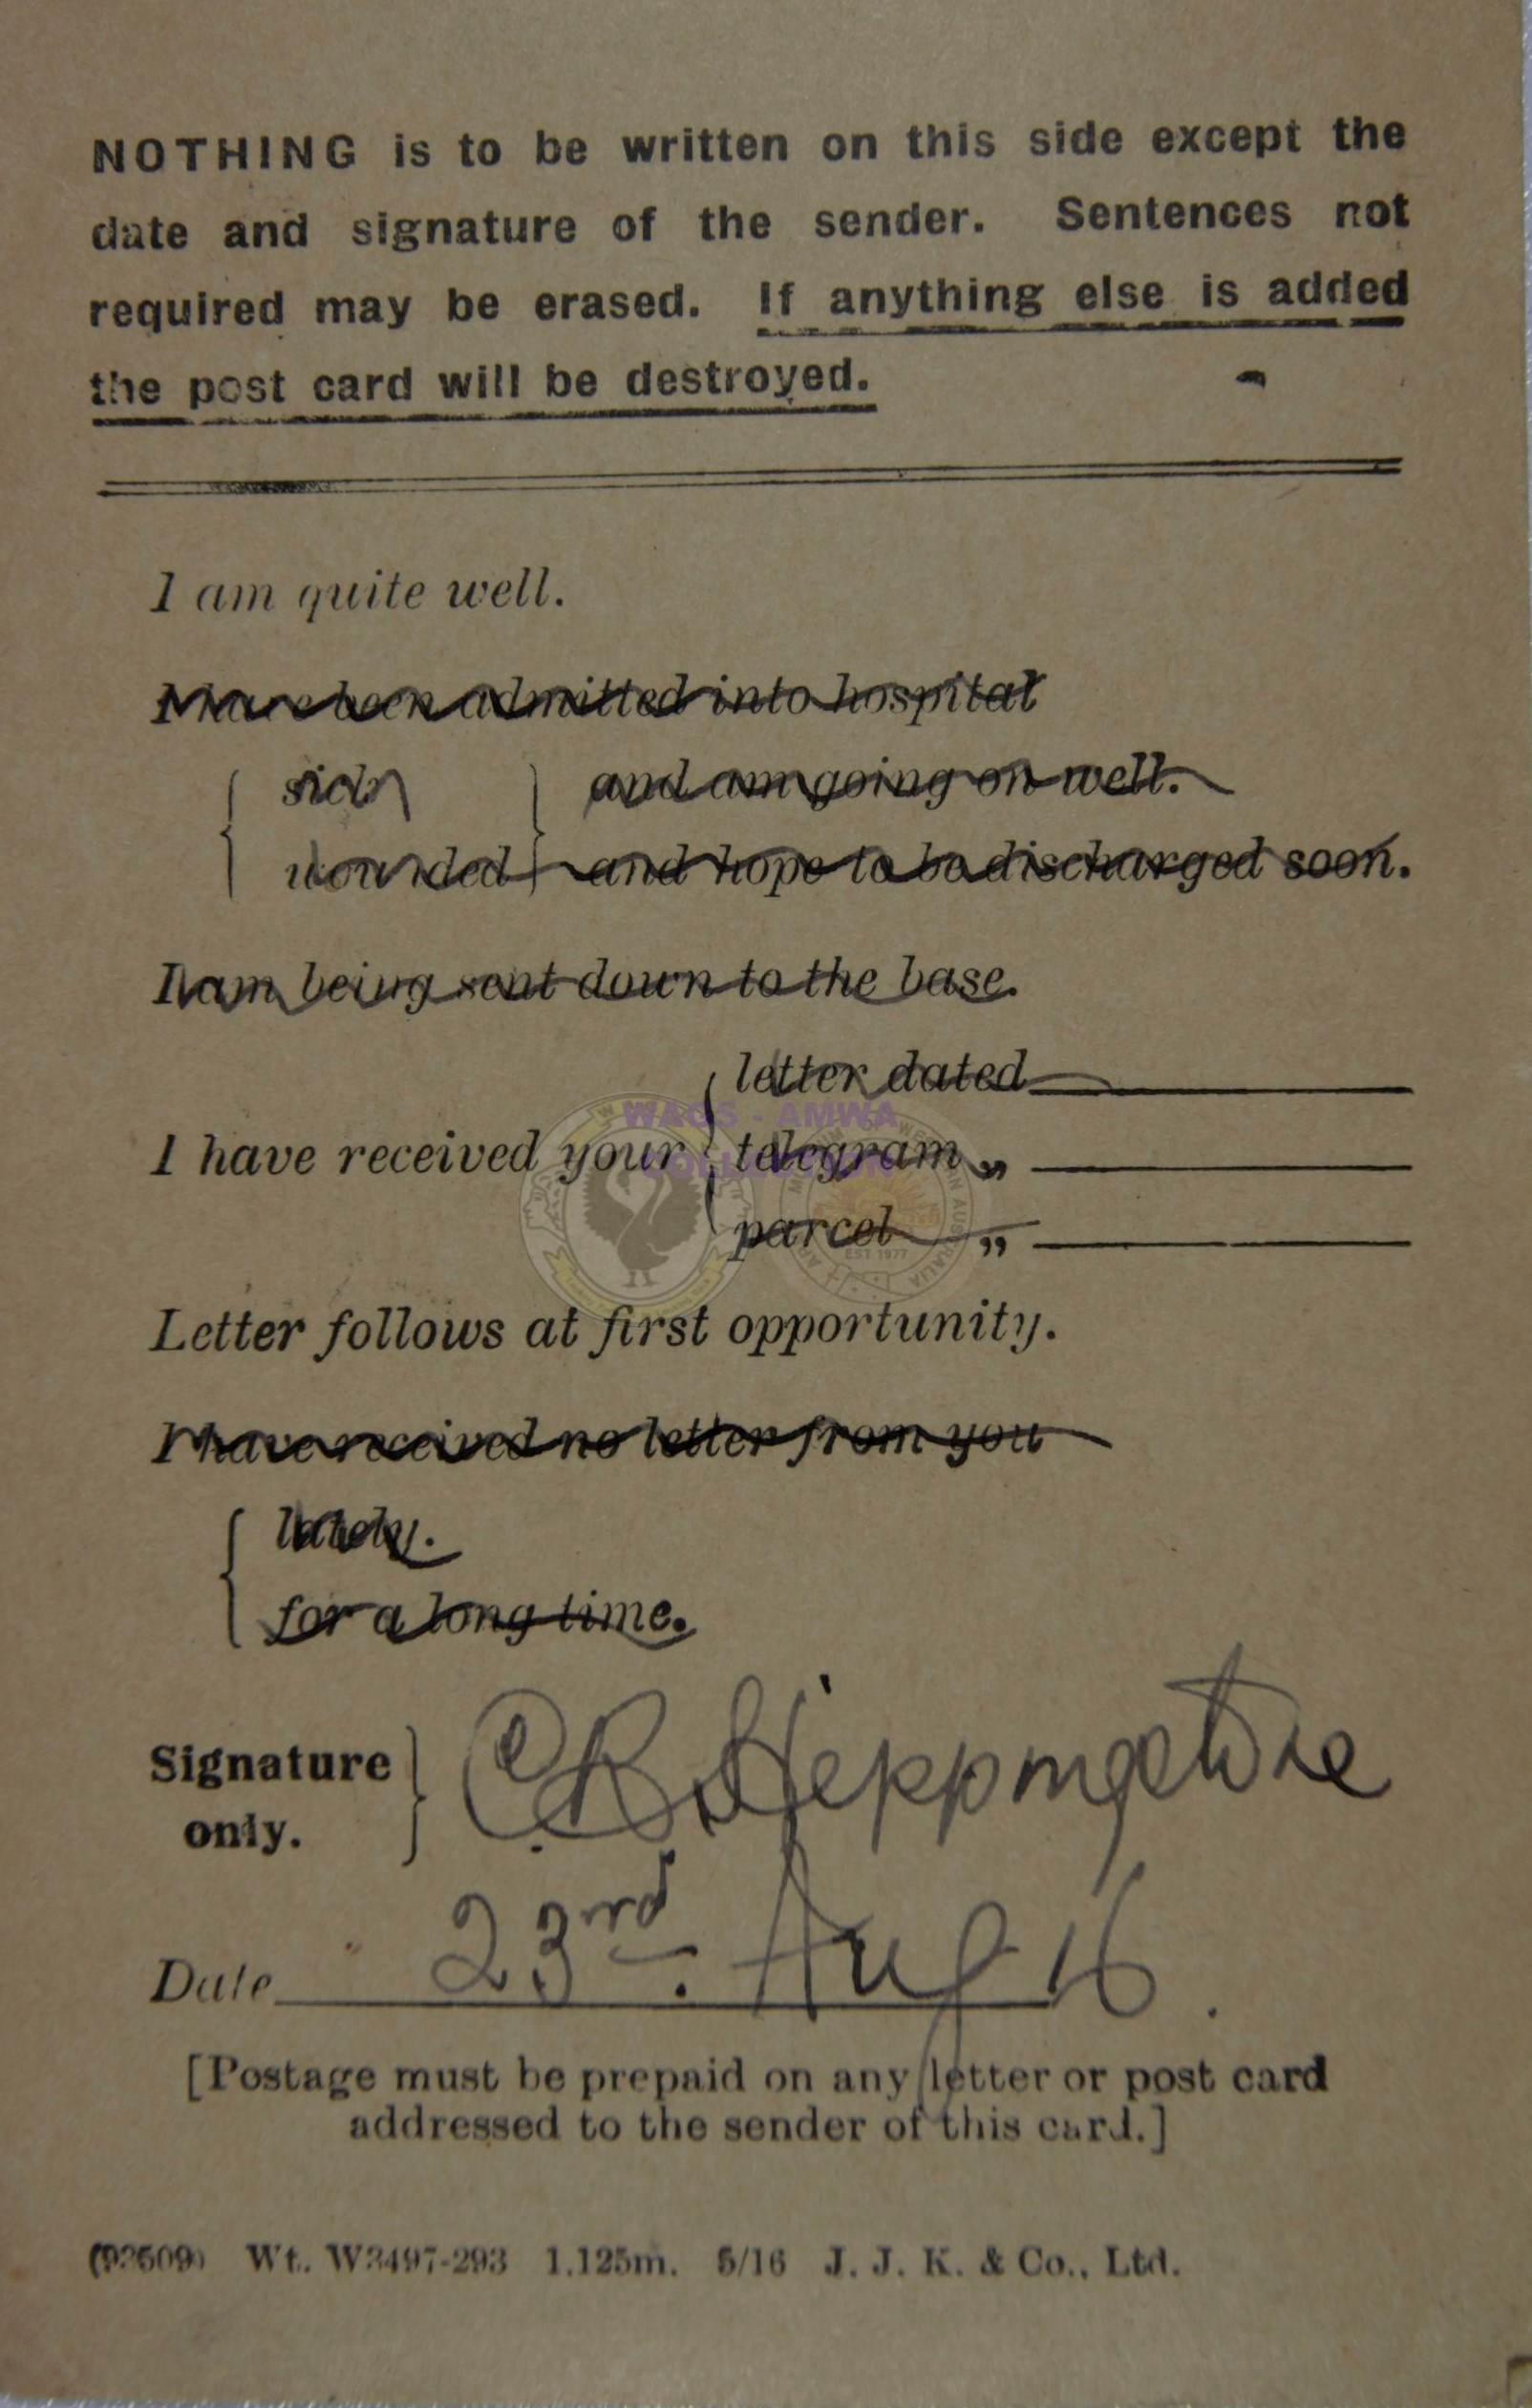 NOTHING is to be written on this side except the
date and signature of the sender. Sentences not
required may be erased. If anything else is added
the post card will be destroyed.
I am quite well.
Have been admitted into hospital
sick and am going on well.
wounded and hope to be discharged soon.
I am being sent down to the base.
letter dated
I have received your telegram „
parcel „
Letter follows at first opportunity.
I have received no letter from you
lately.
for a long time.
Signature
only.
Date 23rd. Aug 16.
[Postage must be prepaid on any letter or post card
addressed to the sender of this card.]
Wt. W3497-293 1,125m. 5/16 J. J. K. & Co., Ltd.
WAGS - AMWA
EST 1977